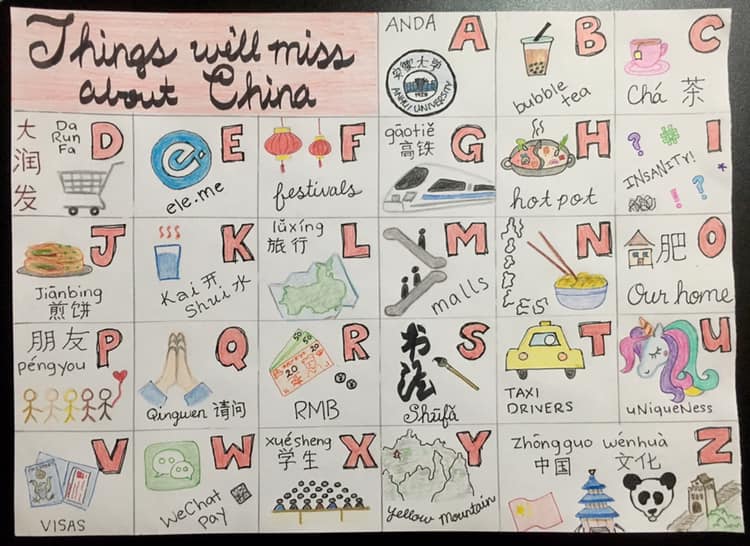 Things we'll miss
about China
ANDA A
安徽大学
ANHUI UNIVERSITY
1928
B
bubble
tea
C
Chá 茶
大润发
Da
Run
Fa
D
e
E
ele.me
F
festivals
gāotiě
高铁
G
H
hot pot
I
? #
INSANITY!
*
! ?
J
Jiānbing
煎饼
K
Kai 开
Shui 水
lǚxíng
旅行
L
M
malls
N
NOODLES
肥
O
Our home
朋友
péngyou
P
Q
Qingwen 请问
R
50
20
RMB
书法
S
Shūfǎ
T
TAXI
DRIVERS
U
uNiqueNess
V
VISAS
W
WeChat
Pay
xuésheng
学生
X
Y
yellow Mountain
Zhōngguo wénhuà
中国 文化
Z